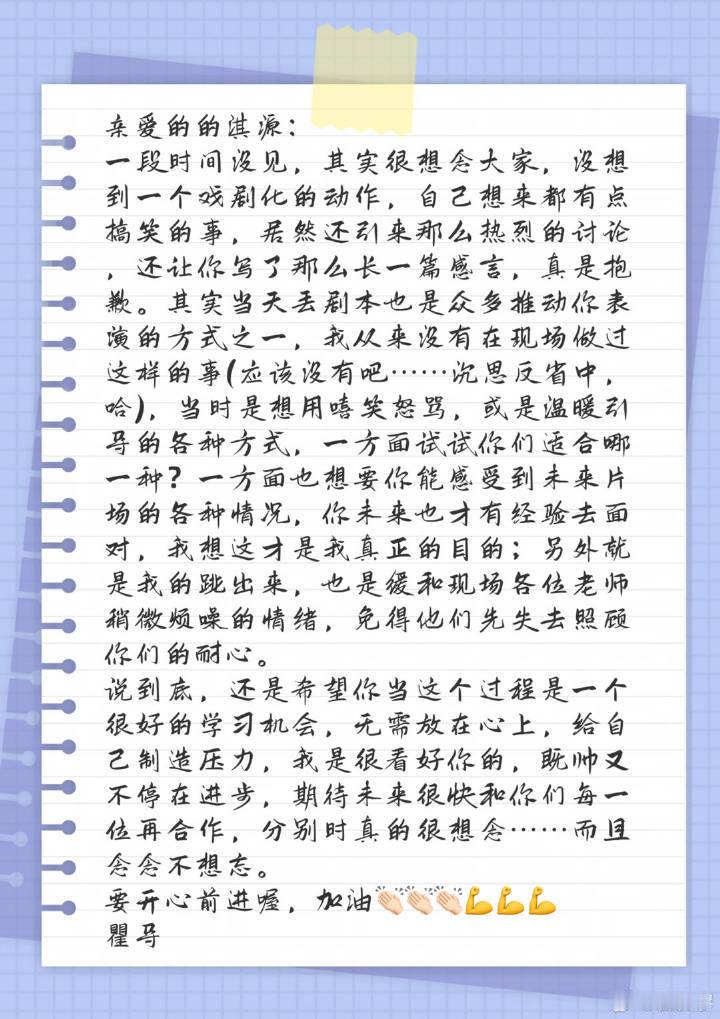 亲爱的的淇源：
一段时间没见，其实很想念大家，没想
到一个戏剧化的动作，自己想来都有点
搞笑的事，居然还引来那么热烈的讨论
，还让你写了那么长一篇感言，真是抱
歉。其实当天丢剧本也是众多推动你表
演的方式之一，我从来没有在现场做过
这样的事(应该没有吧……沉思反省中，
哈)，当时是想用嘻笑怒骂，或是温暖引
导的各种方式，一方面试试你们适合哪
一种？一方面也想要你能感受到未来片
场的各种情况，你未来也才有经验去面
对，我想这才是我真正的目的；另外就
是我的跳出来，也是缓和现场各位老师
稍微烦噪的情绪，免得他们先失去照顾
你们的耐心。
说到底，还是希望你当这个过程是一个
很好的学习机会，无需放在心上，给自
己制造压力，我是很看好你的，既帅又
不停在进步，期待未来很快和你们每一
位再合作，分别时真的很想念……而且
念念不想忘。
要开心前进喔，加油👏🏻👏🏻👏🏻💪💪💪
瞿导